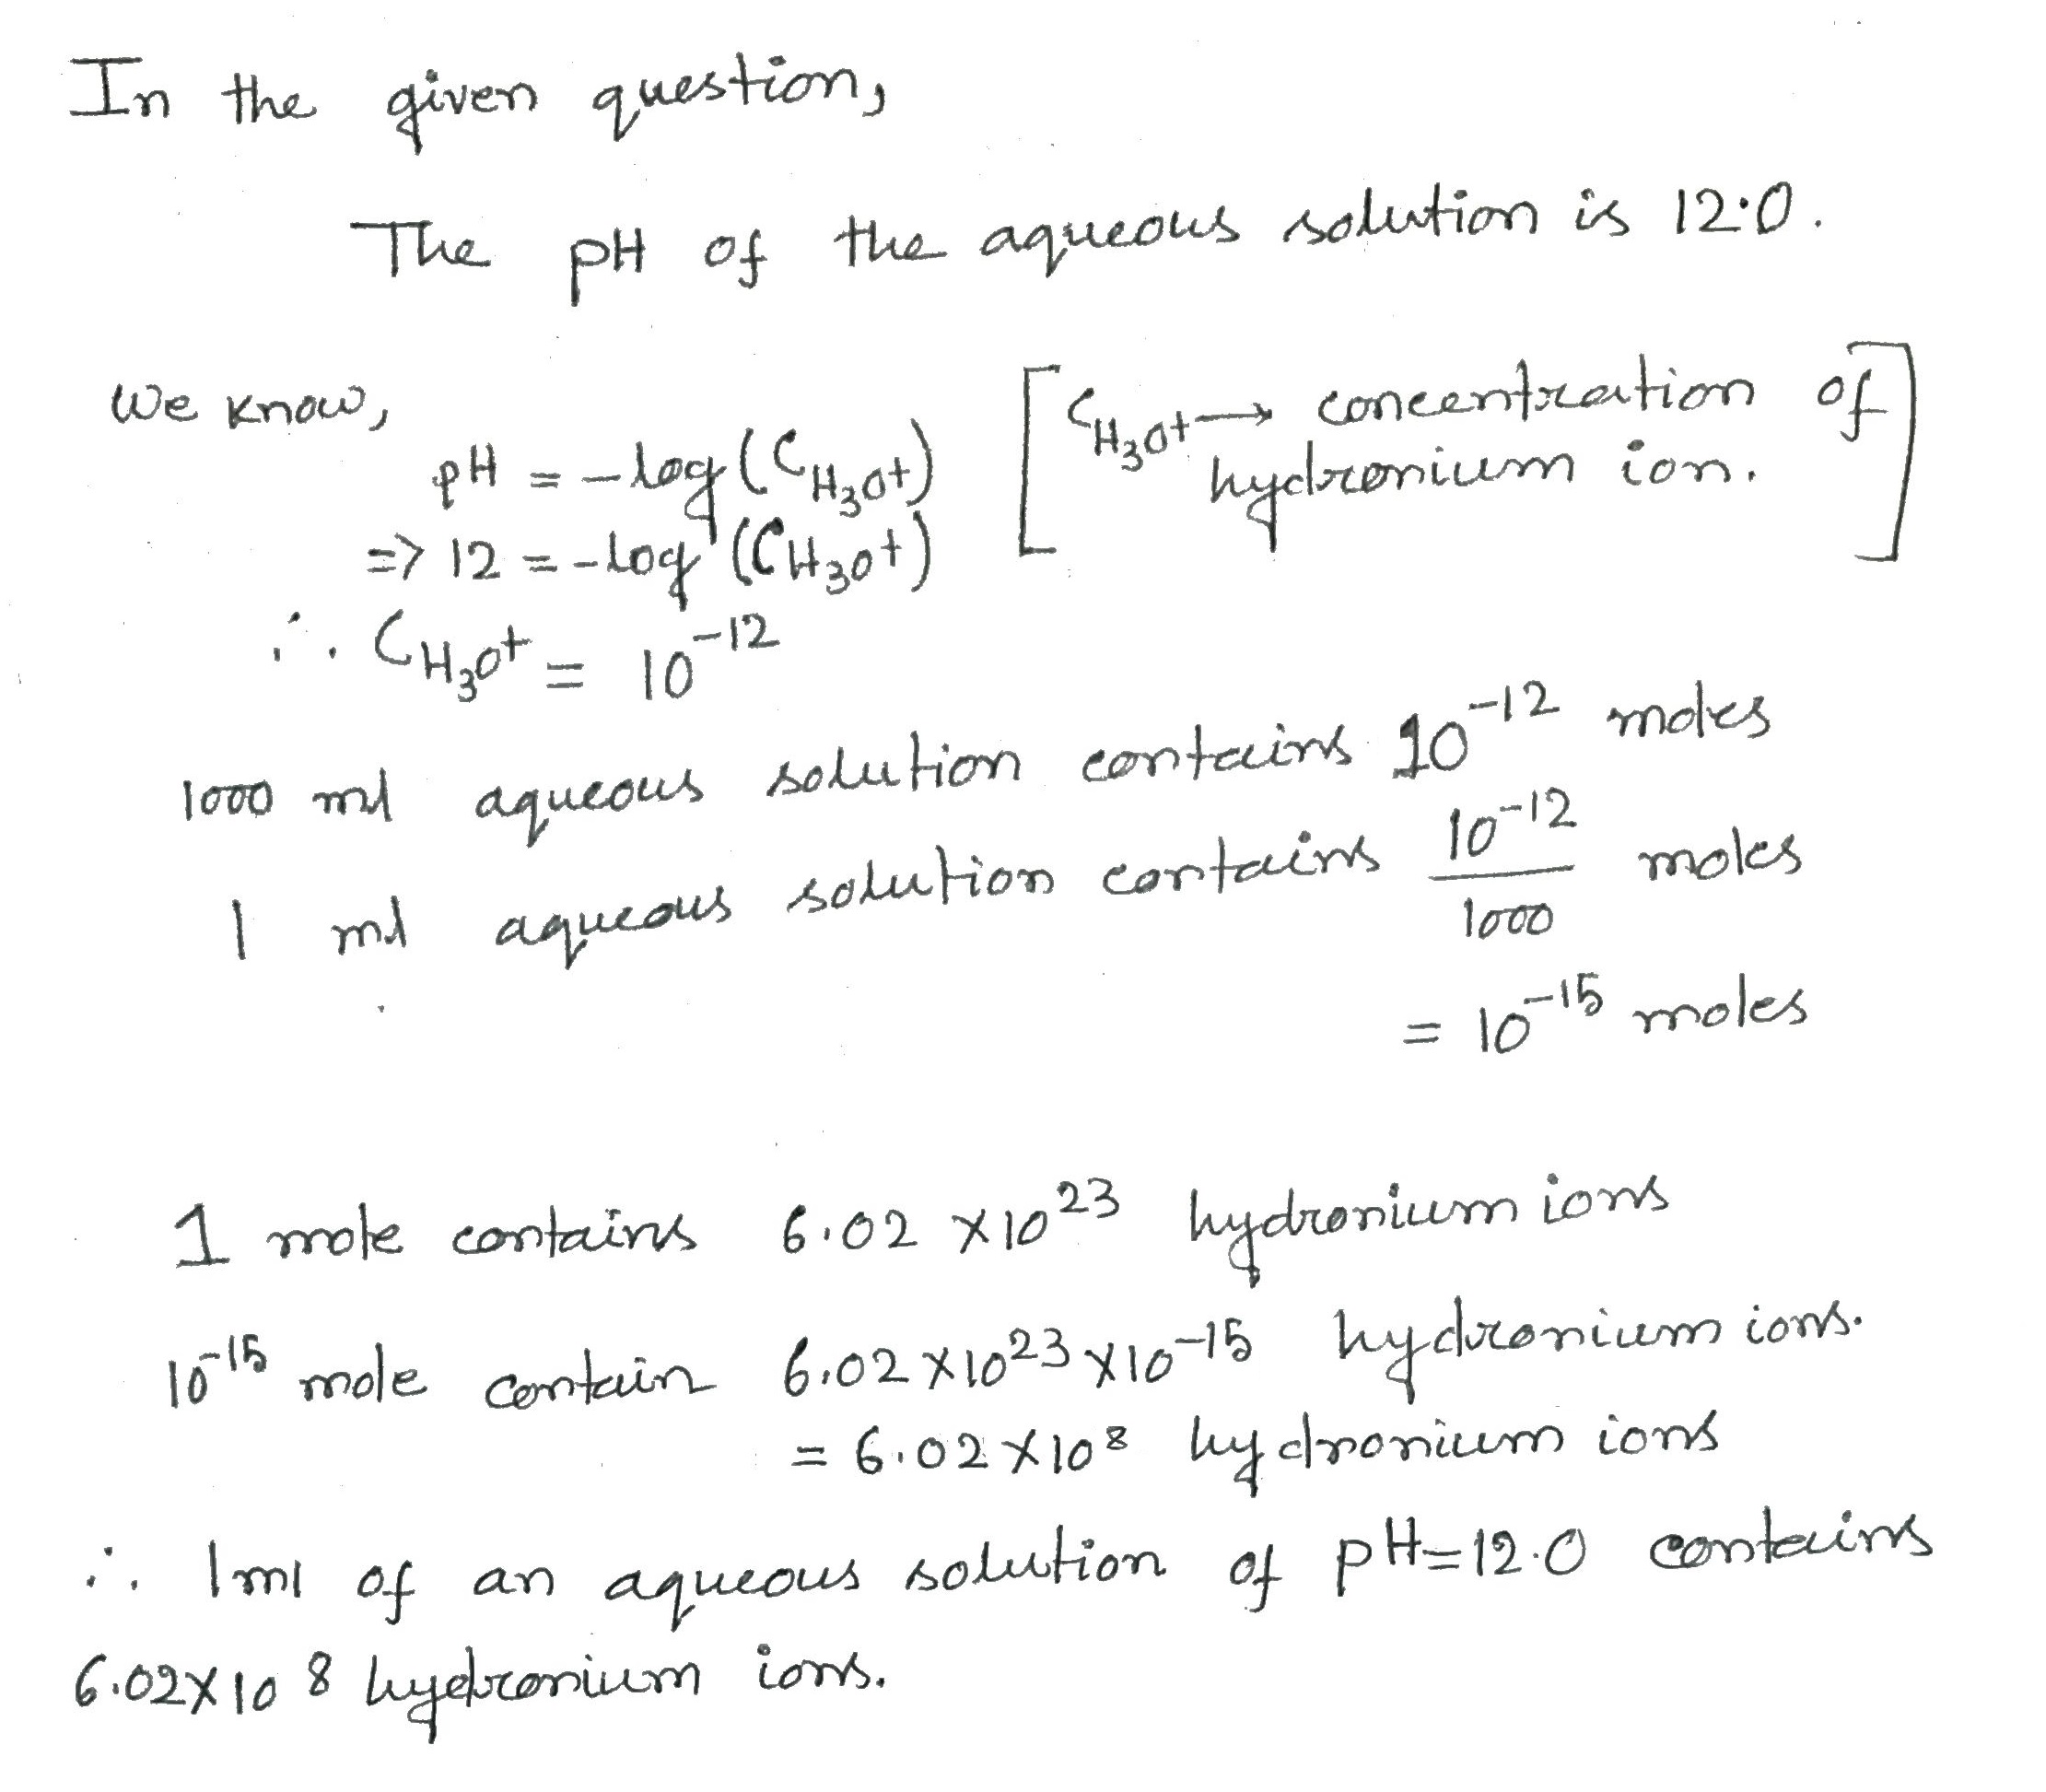 In the given question,
The pH of the aqueous solution is 12.0.
We know,
pH = -log(C_H₃O⁺) [C_H₃O⁺ → concentration of
hydronium ion.]
=> 12 = -log(C_H₃O⁺)
∴ C_H₃O⁺ = 10⁻¹²
1000 ml aqueous solution contains 10⁻¹² moles
1 ml aqueous solution contains 10⁻¹²/1000 moles
= 10⁻¹⁵ moles
1 mole contains 6.02 × 10²³ hydronium ions
10⁻¹⁵ mole contain 6.02 × 10²³ × 10⁻¹⁵ hydronium ions.
= 6.02 × 10⁸ hydronium ions
∴ 1 ml of an aqueous solution of pH = 12.0 contains
6.02 × 10⁸ hydronium ions.